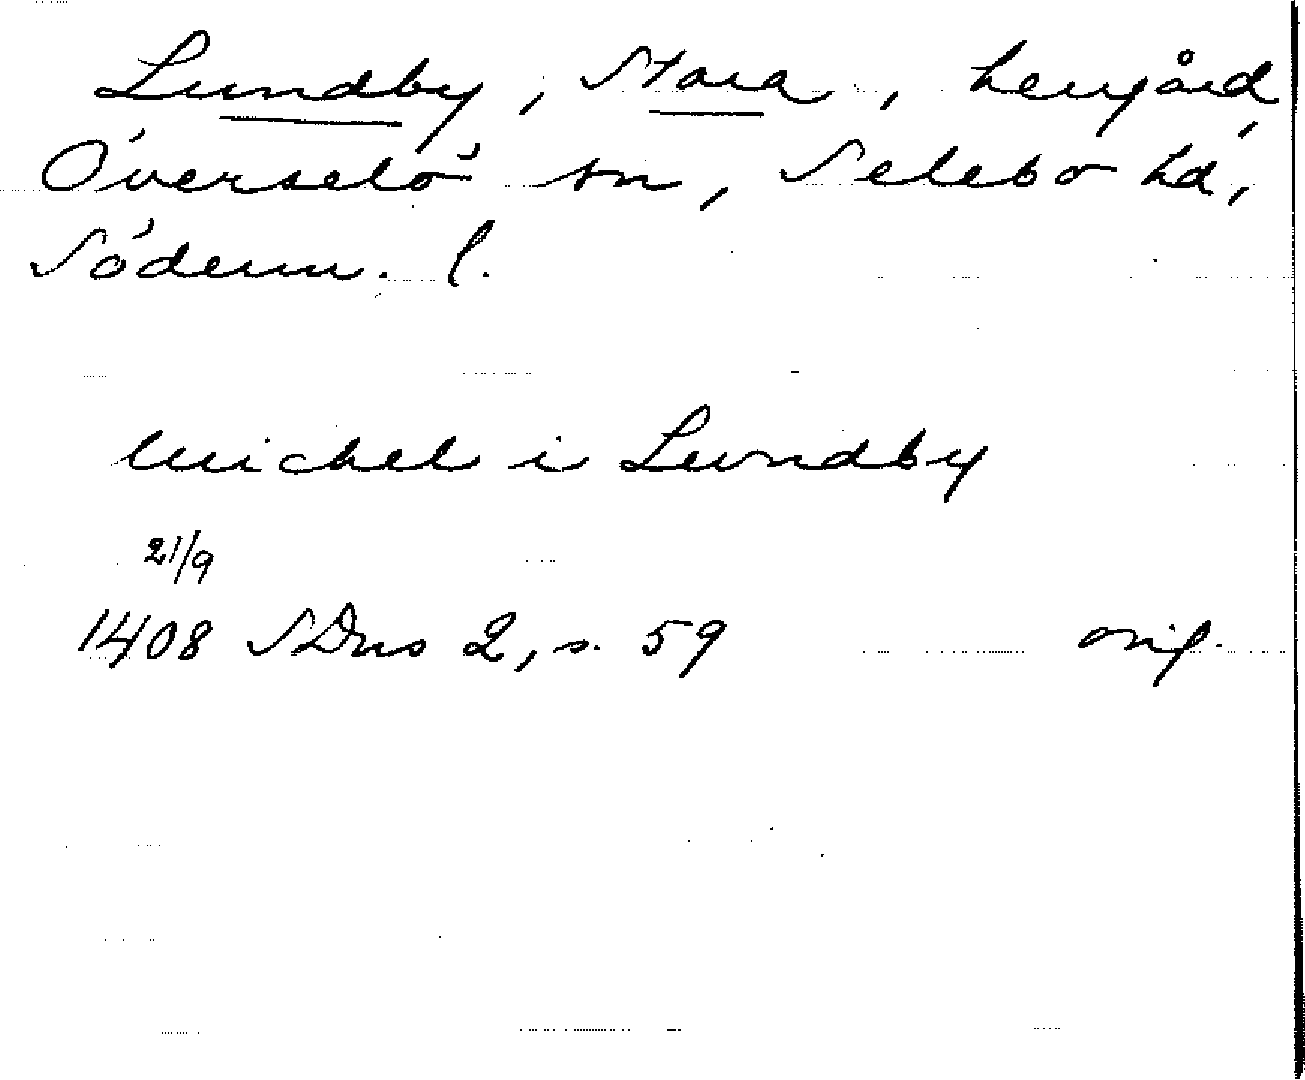 Lundby, Stora, herrgård,
Överselö sn, Selebo hd,
Söderm. l.
Michel i Lundby
21/9
1408 SDns 2, s. 59 orig.